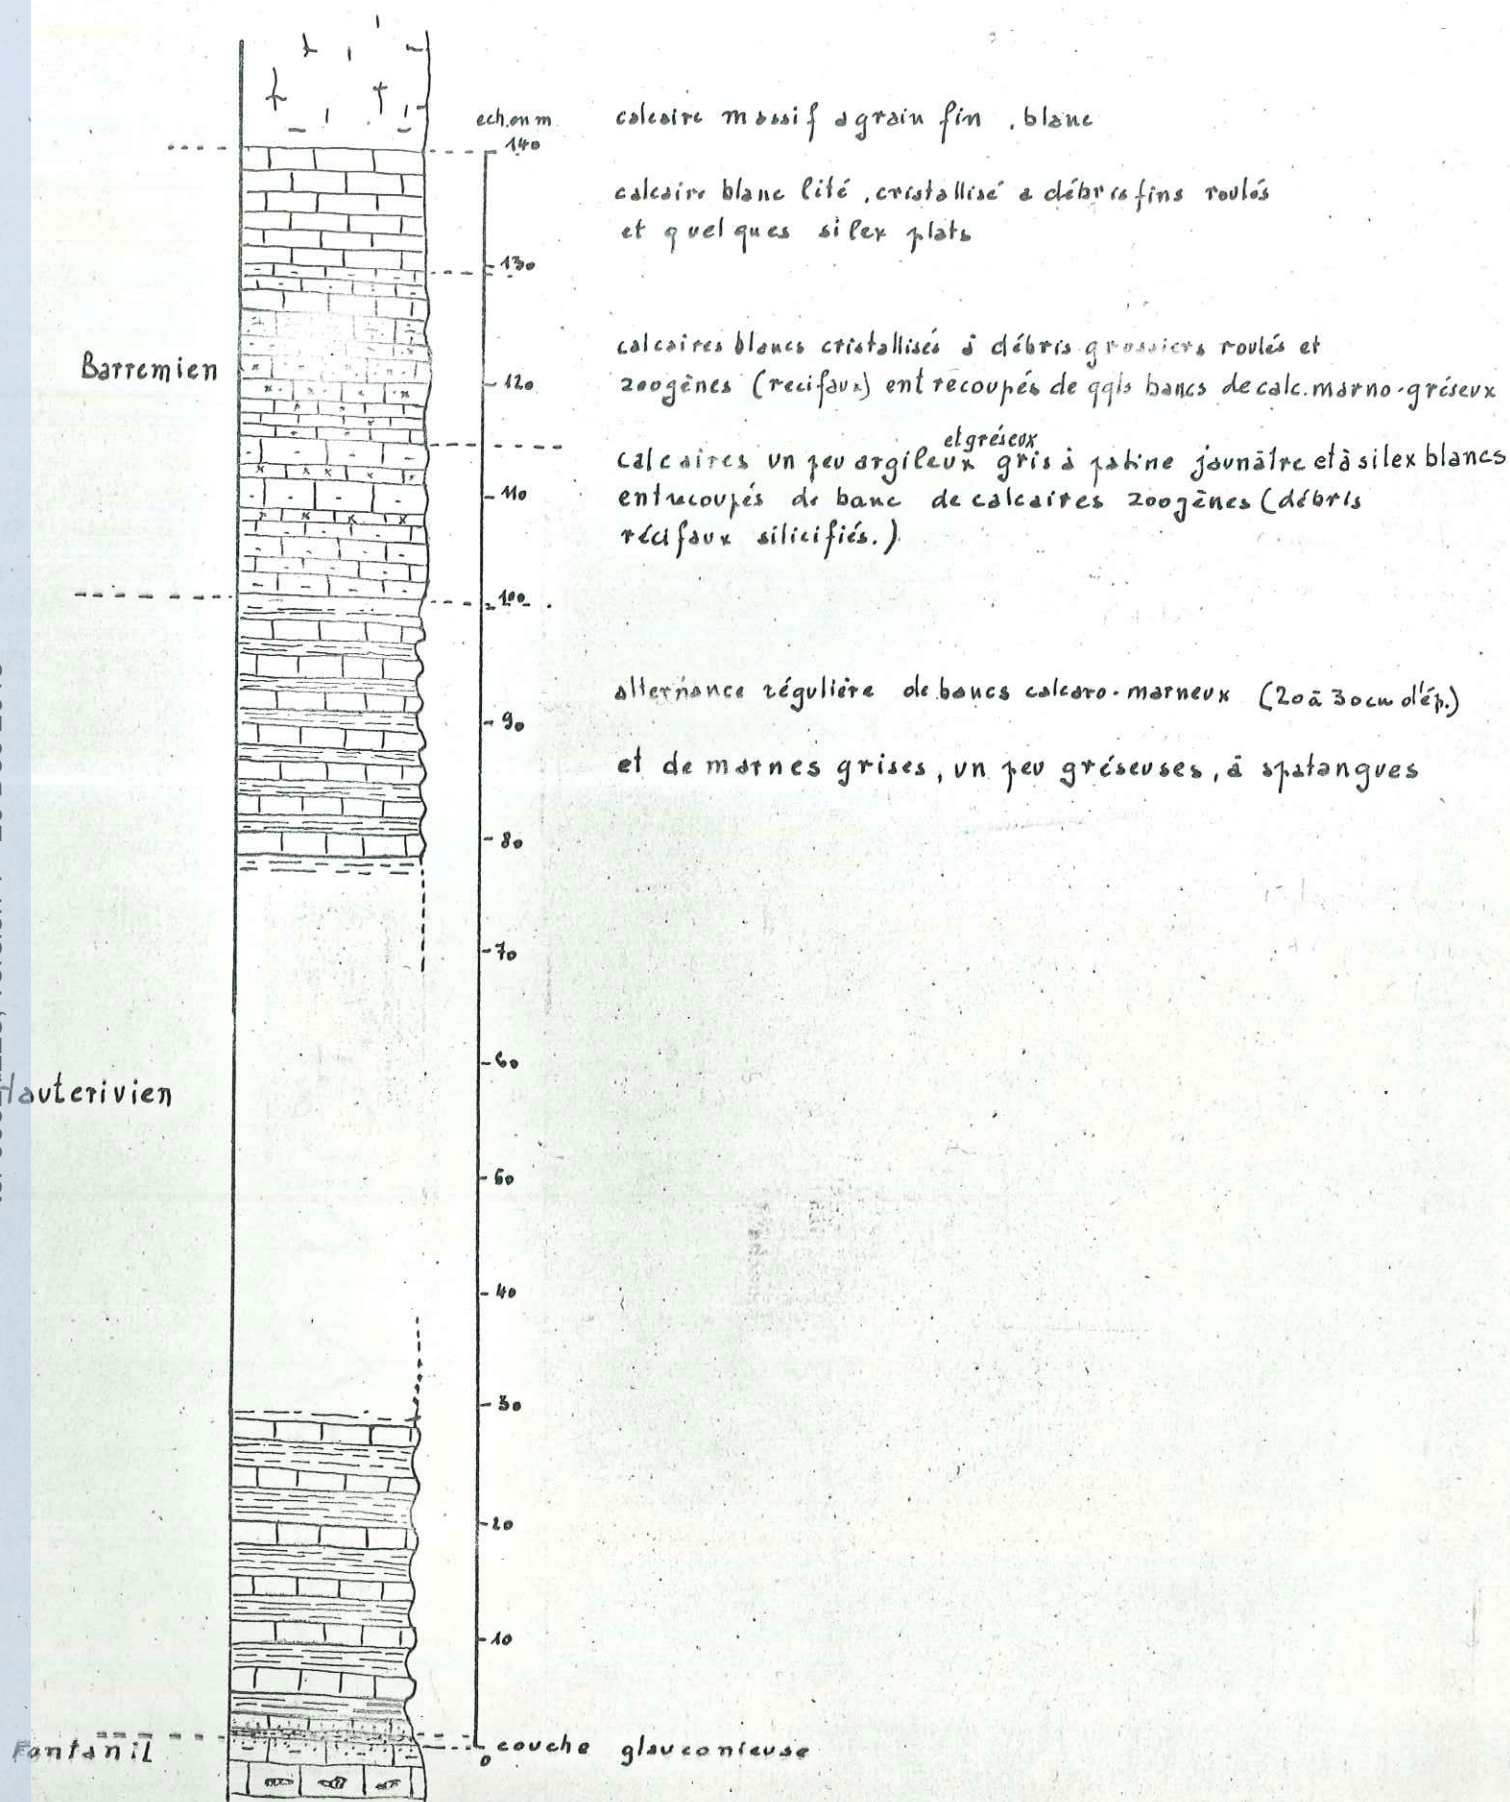 ech.en m
calcaire massif a grain fin, blanc
140
calcaire blanc lité, cristallisé a débris fins roulés
et quelques silex plats
130
calcaires blancs cristallisés à débris grossiers roulés et
Barremien
120
zoogènes (recifaux) entrecoupés de qqls bancs de calc. marno-gréseux
et gréseux
calcaires un peu argileux gris à patine jaunâtre et à silex blancs
110
entrecoupés de banc de calcaires zoogènes (débris
récifaux silicifiés.)
100
alternance régulière de bancs calcaro-marneux (20 à 30 cm d'ép.)
90
et de marnes grises, un peu gréseuses, à spatangues
80
70
60
Hauterivien
50
40
30
20
10
Fontanil
0
couche glauconieuse